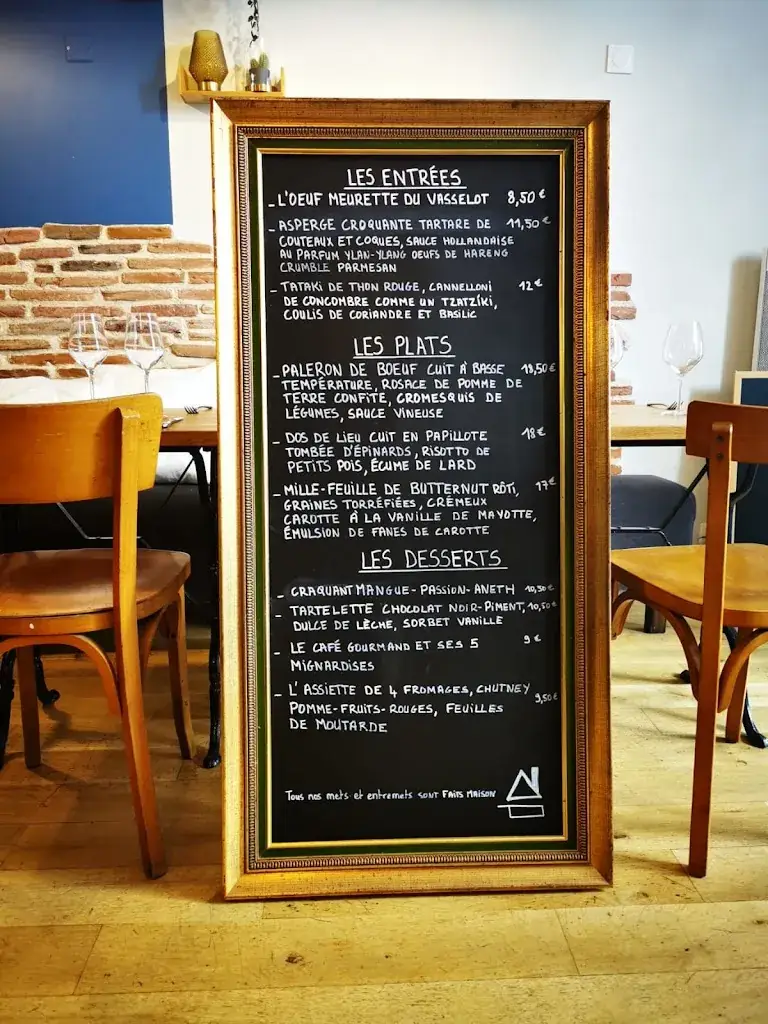 LES ENTRÉES
- L'OEUF MEURETTE DU VASSELOT 8,50 €
- ASPERGE CROQUANTE TARTARE DE 11,50 €
COUTEAUX ET COQUES, SAUCE HOLLANDAISE
AU PARFUM YLAN-YLANG OEUFS DE HARENG
CRUMBLE PARMESAN
- TATAKI DE THON ROUGE, CANNELLONI 12 €
DE CONCOMBRE COMME UN TZATZÍKI,
COULIS DE CORIANDRE ET BASILIC
LES PLATS
- PALERON DE BOEUF CUIT À BASSE 18,50 €
TEMPÉRATURE, ROSACE DE POMME DE
TERRE CONFITE, CROMESQUIS DE
LÉGUMES, SAUCE VINEUSE
- DOS DE LIEU CUIT EN PAPILLOTE 18 €
TOMBÉE D'ÉPINARDS, RISOTTO DE
PETITS POIS, ÉCUME DE LARD
- MILLE-FEUILLE DE BUTTERNUT RÔTI, 17 €
GRAINES TORRÉFIÉES, CRÉMEUX
CAROTTE À LA VANILLE DE MAYOTTE,
ÉMULSION DE FANES DE CAROTTE
LES DESSERTS
- CRAQUANT MANGUE-PASSION-ANETH 10,50 €
- TARTELETTE CHOCOLAT NOIR-PIMENT, 10,50 €
DULCE DE LÈCHE, SORBET VANILLE
- LE CAFÉ GOURMAND ET SES 5 9 €
MIGNARDISES
- L'ASSIETTE DE 4 FROMAGES, CHUTNEY 9,50 €
POMME-FRUITS-ROUGES, FEUILLES
DE MOUTARDE
Tous nos mets et entremets SONT FAITS MAISON